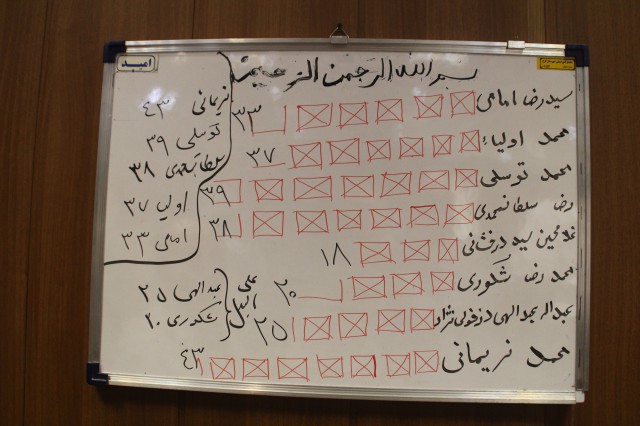 بسم الله الرحمن الرحیم
سید رضا امامی ۳۳
محمد اولیاء ۳۷
محمد توسلی ۳۹
رضا سلطانمحمدی ۳۸
غلامحسین سید درفشانی ۱۸
محمد رضا شکوری ۲۰
عبداله عبدالهی دزفولی نژاد ۲۵
محمد نریمانی ۴۳
امید
نریمانی ۴۳
توسلی ۳۹
سلطانمحمدی ۳۸
اولیا ۳۷
امامی ۳۳
علی البدل
عبدالهی ۲۵
شکوری ۲۰